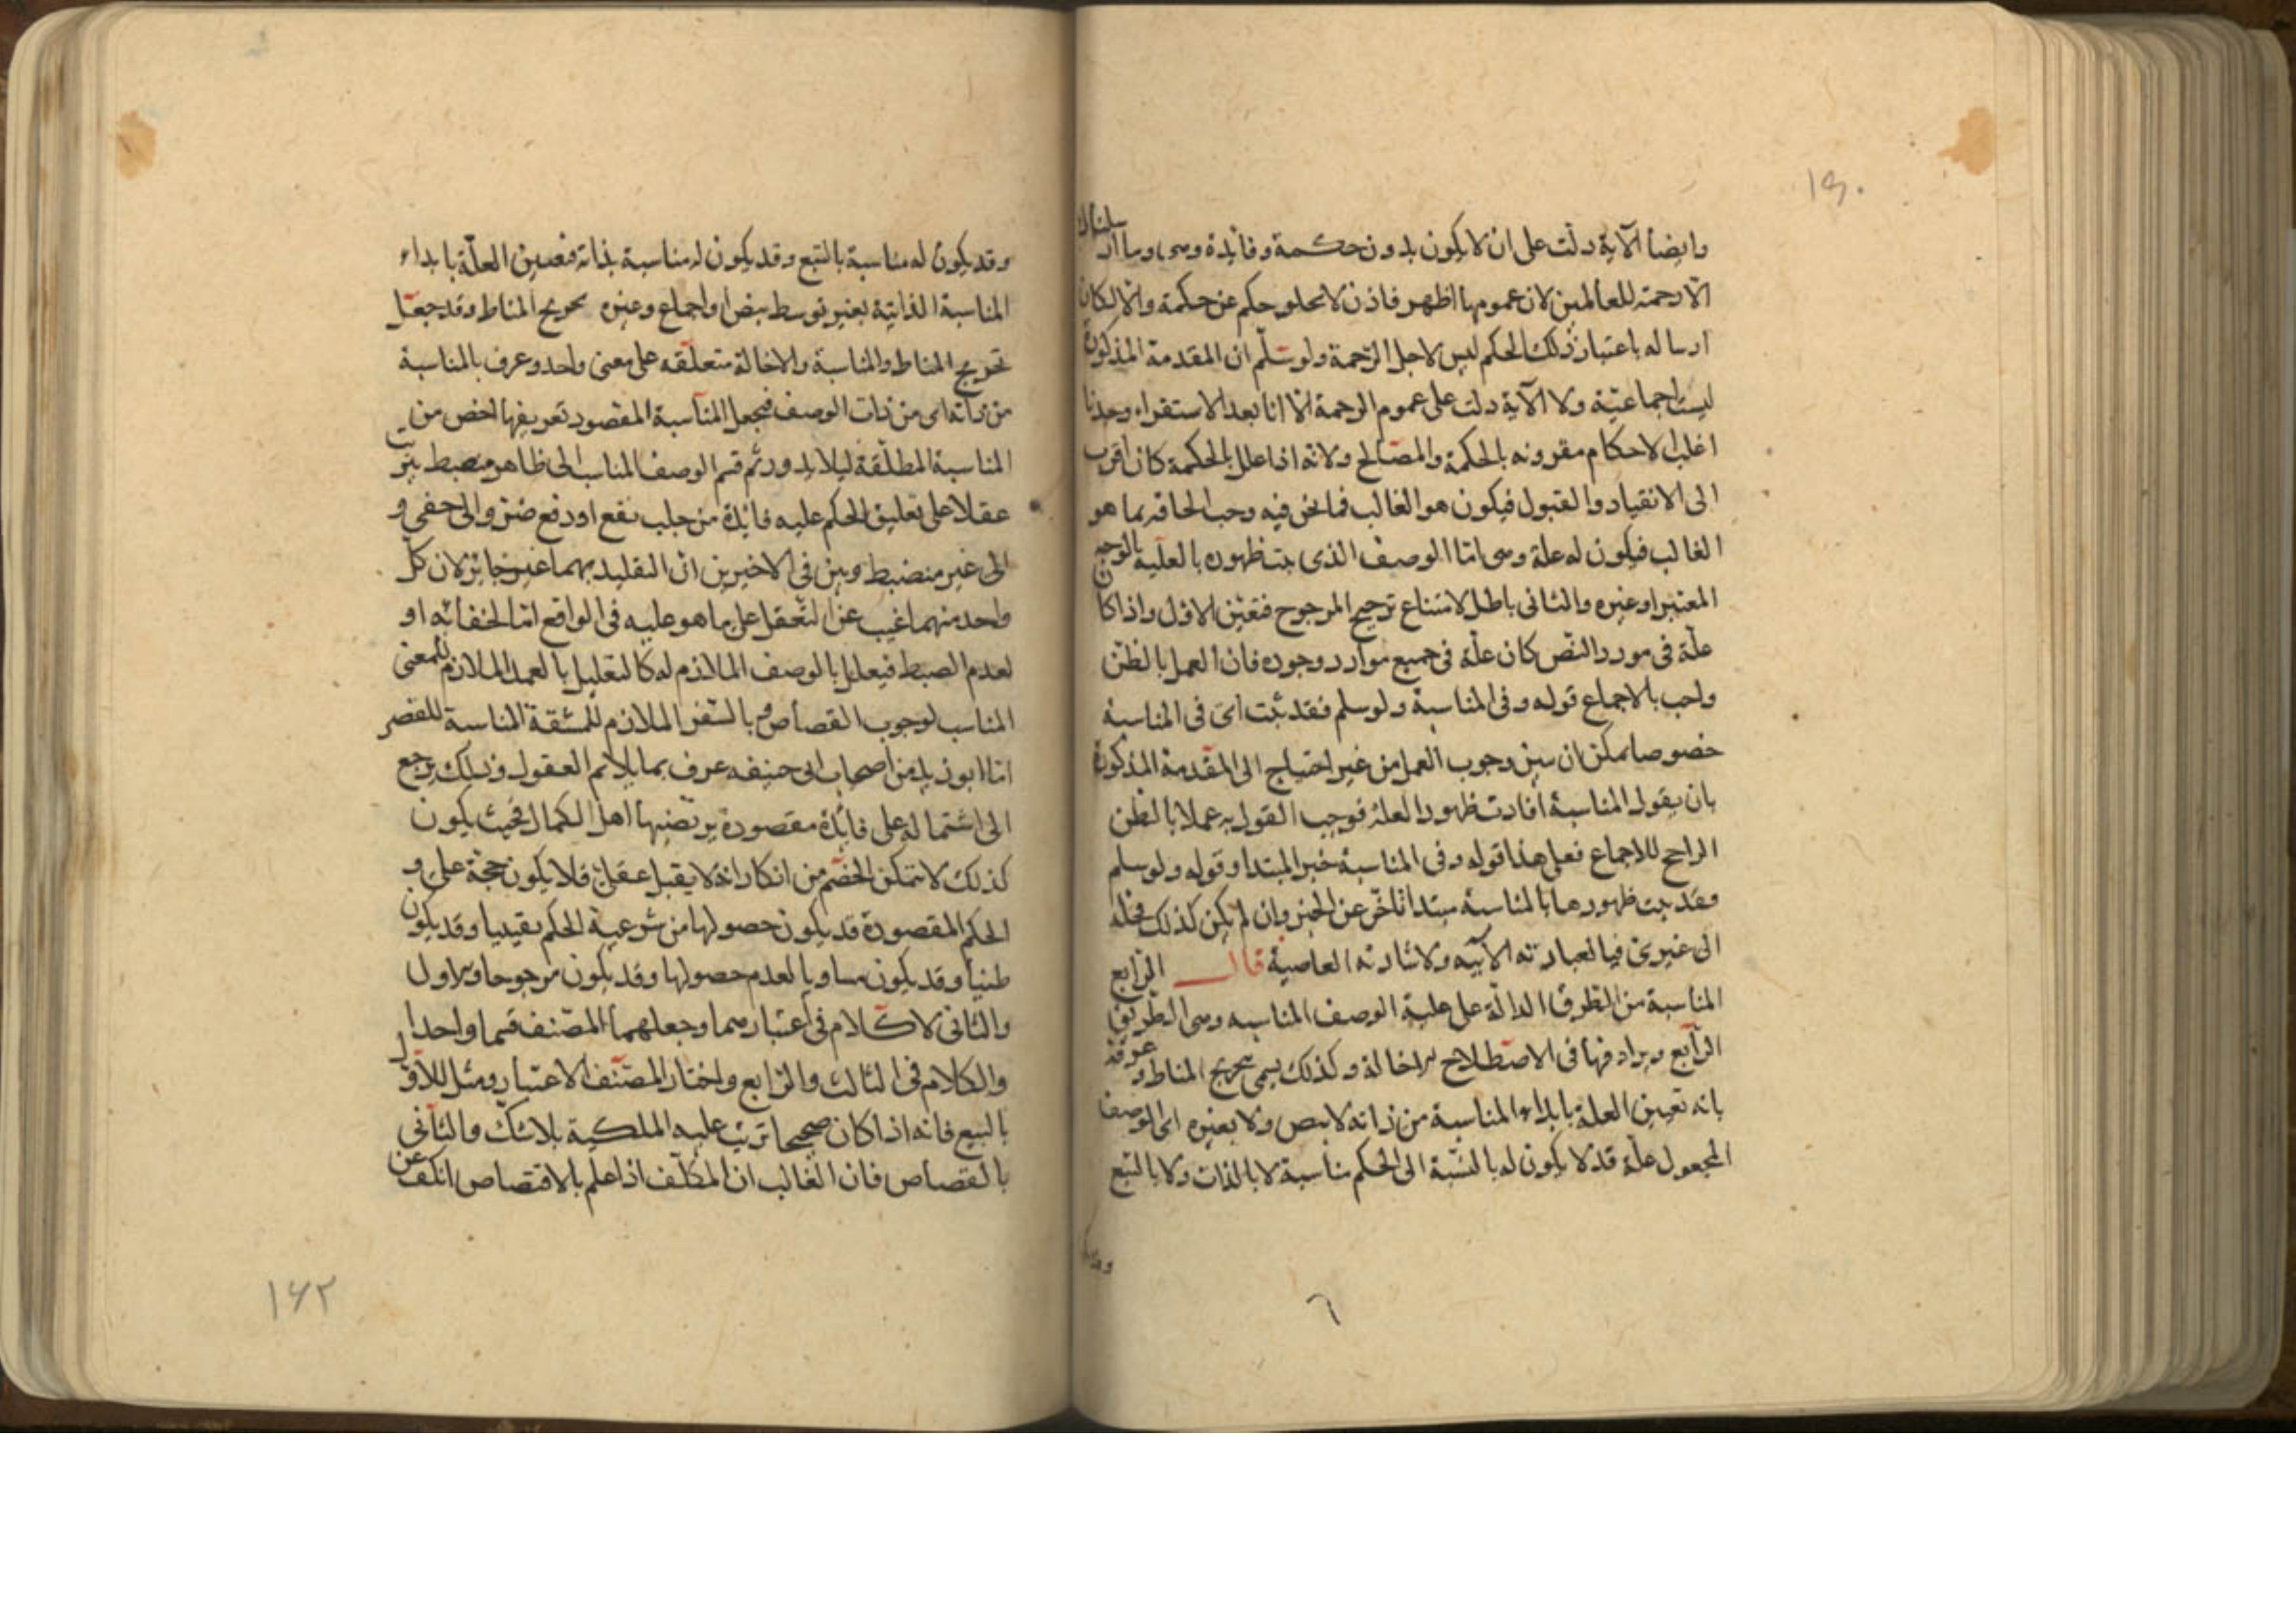 ١٥٠
وايضا الآية دلت على ان لا يكون بدون حكمة وفائدة وهى وما ارسلناك
الا رحمة للعالمين لان عمومها اظهر فاذن لا يخلو حكم عن حكمة والا لكان
ارساله باعتبار ذلك الحكم ليس لاجل الرحمة ولو سلم ان المقدمة المذكورة
ليست اجماعية ولا الآية دلت على عموم الرحمة الا انا بعد الاستقراء وجدنا
اغلب الاحكام مقرونه بالحكمة والمصالح ولانه اذا علل بالحكمة كان اقرب
الى الانقياد والقبول فيكون هو الغالب فما نحن فيه وجب الحاقه بما هو
الغالب فيكون له علة وهى اما الوصف الذى ثبت ظهوره بالعلية بالوجه
المعتبر او غيره والثانى باطل لامتناع ترجيح المرجوح فتعين الاول واذا كان
علة فى مورد النص كان علة فى جميع موارد وجوده فان العمل بالظن
واجب بالاجماع قوله وفى المناسبة ولو سلم فقد ثبت اى فى المناسبة
خصوصا يمكن ان يبين وجوب العمل من غير احتياج الى المقدمة المذكورة
بان يقول المناسبة افادت ظهور العلة فوجب القول به عملا بالظن
الراجح للاجماع فعلى هذا قوله وفى المناسبة خبر المبتدا وقوله ولو سلم
وقد ثبت ظهورها بالمناسبة مبتدا تاخر عن الخبر وان لم يكن كذلك فخله
الى غيرى فيا لعبارته الابيه ولاشارته العاصية قال الرابع
المناسبة من الطرق الدالة على علية الوصف المناسبه وهى الطريق
الرابع ويرادفها فى الاصطلاح الاخالة وكذلك يسمى تخريج المناط وعرفه
بانه تعيين العلة بابداء المناسبة من ذاته لا بنص ولا بغيره اى الوصف
المجعول علة قد لا يكون له بالنسبة الى الحكم مناسبة لا بالذات ولا بالتبع
٦
وقد يكون له مناسبة بالتبع وقد يكون له مناسبة بذاته فتعيين العلة بابداء
المناسبة الذاتية بغير توسط بنص او اجماع وغيره تخريج المناط وقد جعل
تخريج المناط والمناسبة والاخالة متعلقه على معنى واحد وعرف بالمناسبة
من ذاته اى من ذات الوصف فيجعل المناسبة المقصود تعريفها اخص من
المناسبة المطلقة ليلا يدور ثم قسم الوصف المناسب الى ظاهر منضبط يترتب
عقلا على تعليق الحكم عليه فائدة من جلب نفع او دفع ضر والى خفى و
الى غير منضبط وبين فى الاخيرين ان التقليد بهما غير جائز لان كل
واحد منهما غيب عن التعقل على ما هو عليه فى الواقع اما لخفائه او
لعدم الضبط فيعلل بالوصف الملازم له كالتعليل بالعمد الملازم للمعنى
المناسب لوجوب القصاص وبالسفر الملازم للمشقة المناسبة للقصر
اما ابو زيد من اصحاب ابى حنيفه عرف بما يلائم العقول وذلك يرجع
الى اشتماله على فائدة مقصودة يرتضيها اهل الكمال بحيث يكون
كذلك لا يتمكن الخصم من انكار انه لا يقبل عقلى فلا يكون حجة على و
الحكم المقصودة قد يكون حصولها من شرعية الحكم يقينيا وقد يكون
ظنيا وقد يكون مساويا لعدم حصولها وقد يكون مرجوحا والاول
والثانى لا كلام فى اعتبارهما وجعلهما المصنف قسما واحدا
والكلام فى الثالث والرابع واختار المصنف الاعتبار ومثل للاول
بالبيع فانه اذا كان صحيحا ترتب عليه الملكية بلا شك والثانى
بالقصاص فان الغالب ان المكلف اذا علم بالاقتصاص انكف عن
١٦٢